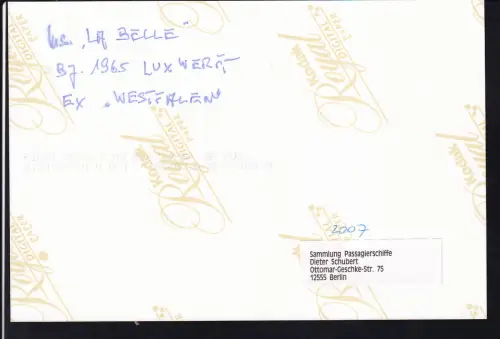 "LA BELLE"
BJ. 1965 LUX WERFT
EX "WESTFALEN"
2007
Sammlung Passagierschiffe
Dieter Schubert
Ottomar-Geschke-Str. 75
12555 Berlin
Kodak
Royal
DIGITAL
PAPER